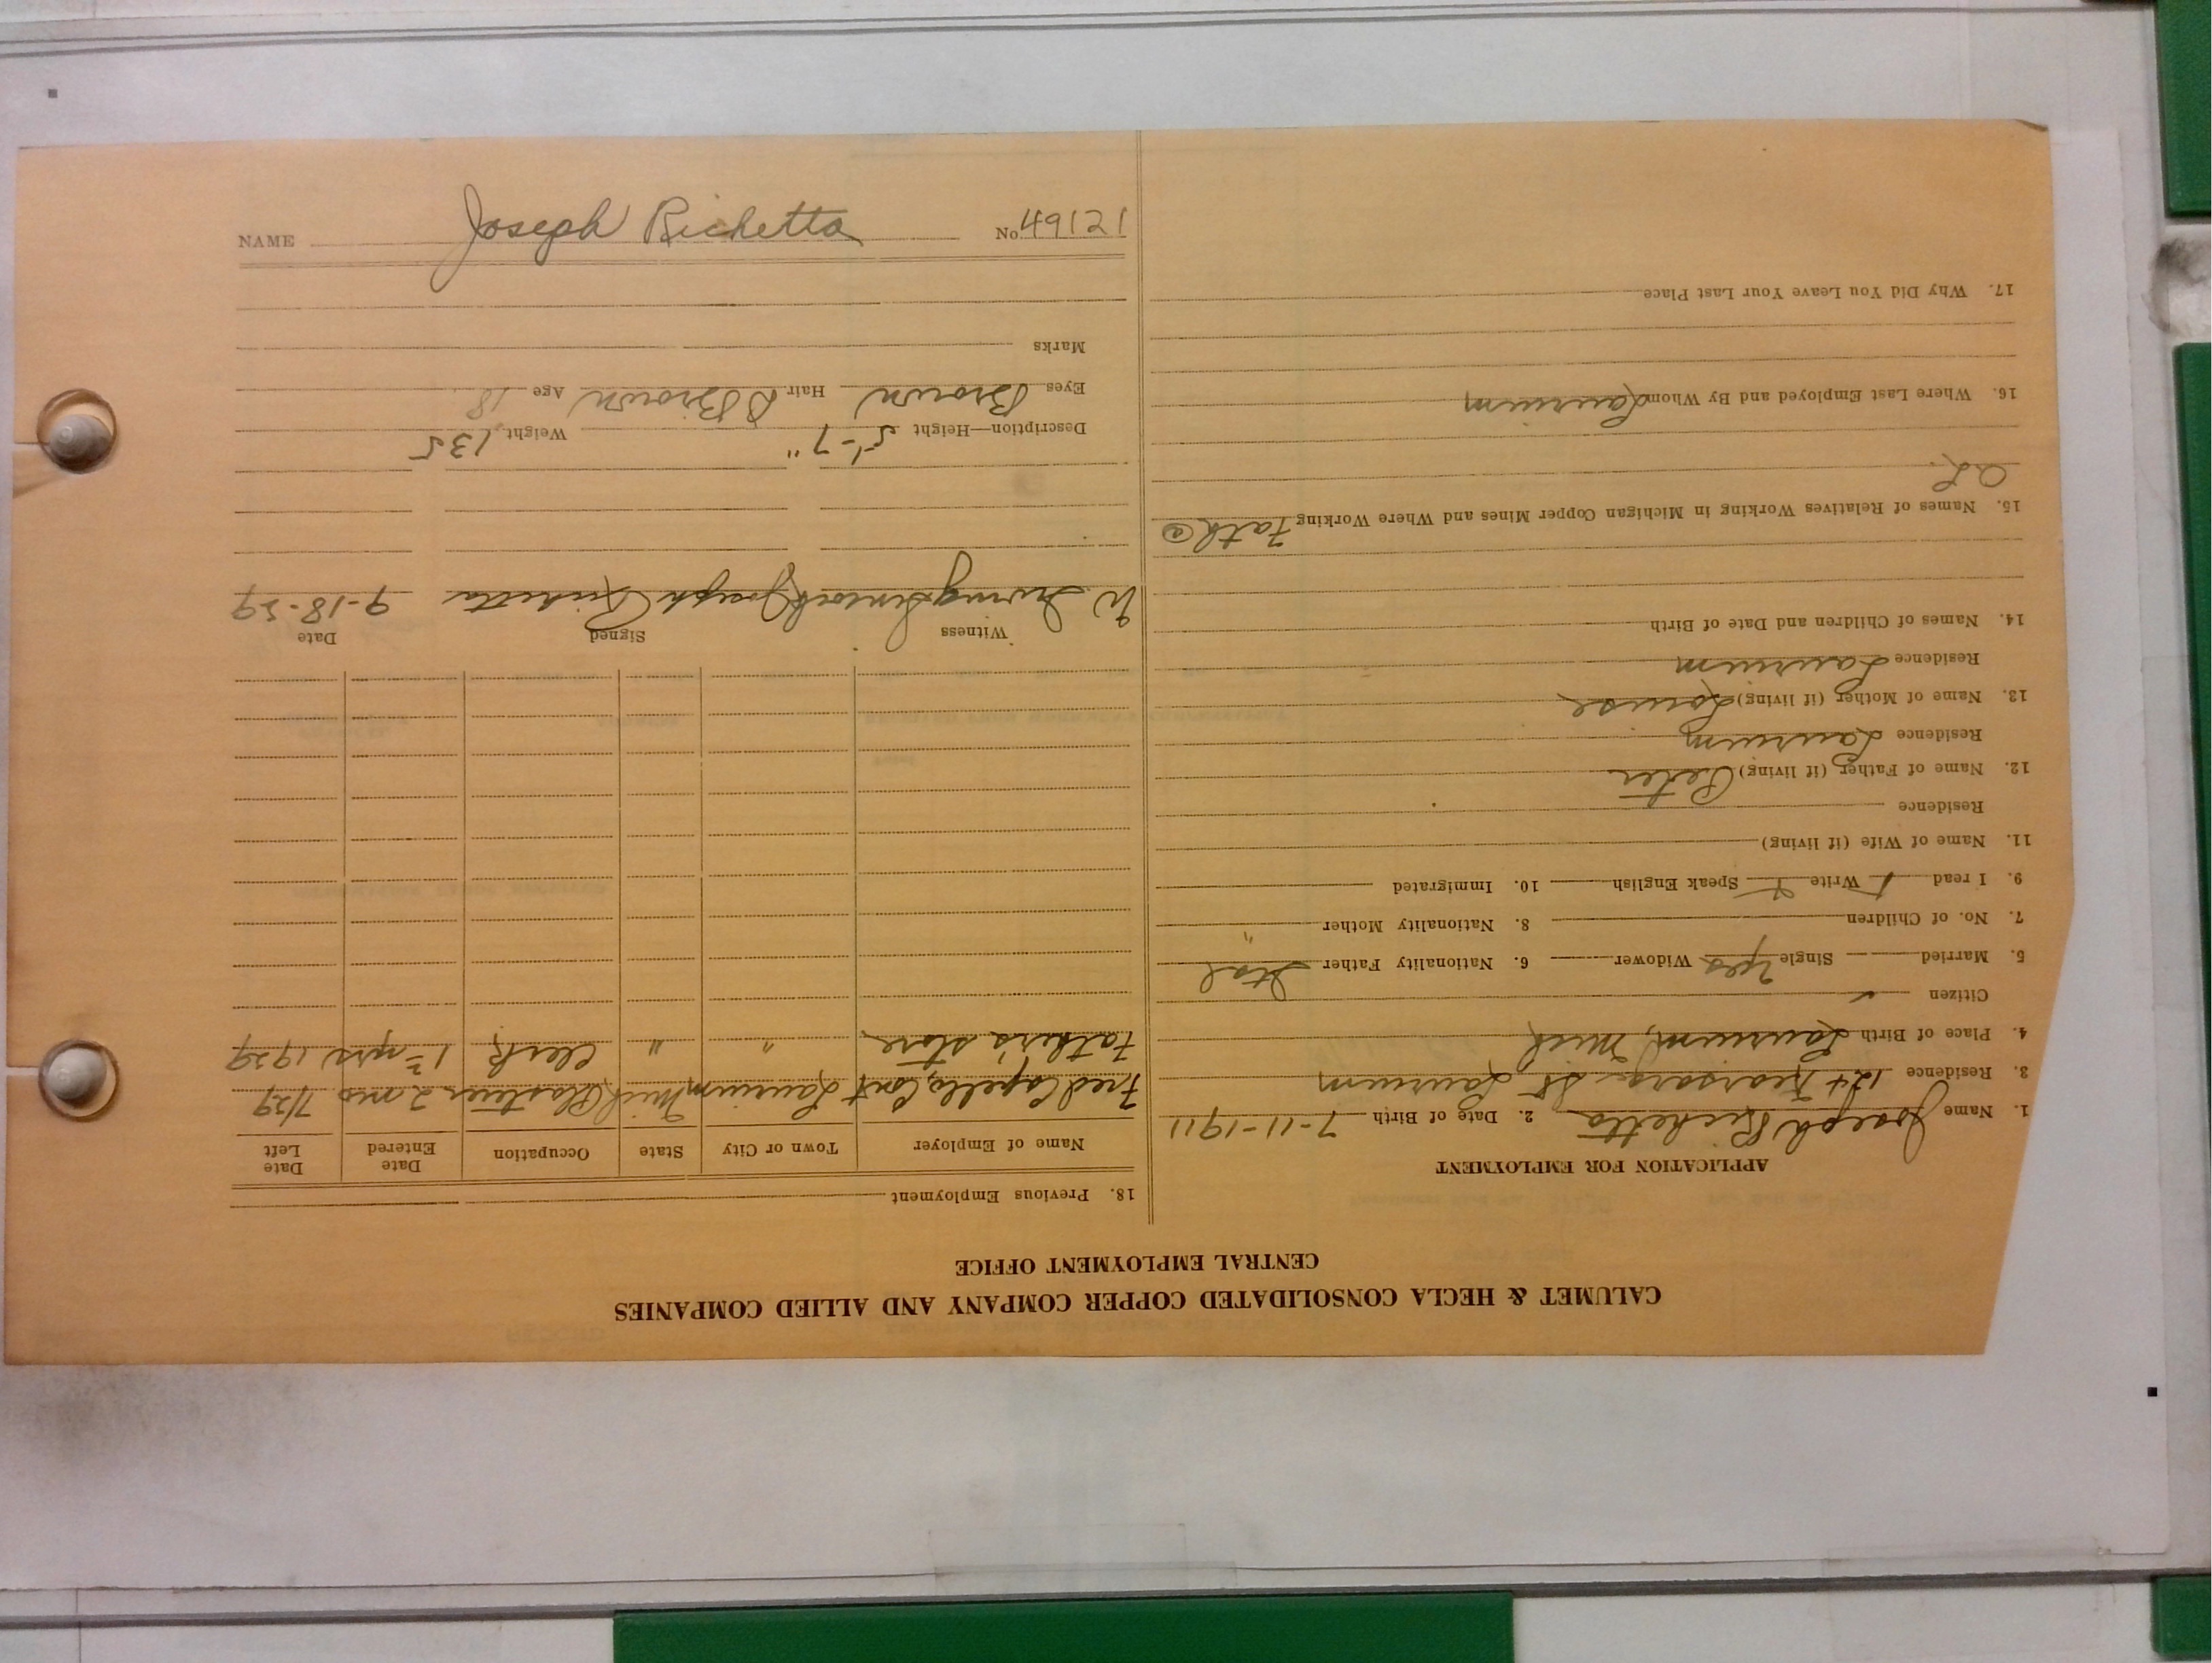 NAME Joseph Richetta No 49121
CALUMET & HECLA CONSOLIDATED COPPER COMPANY AND ALLIED COMPANIES
CENTRAL EMPLOYMENT OFFICE
APPLICATION FOR EMPLOYMENT
1. Name Joseph Richetta 2. Date of Birth 7-11-1911
3. Residence 124 Kearsarge St Laurium
4. Place of Birth Laurium, Mich
Citizen ✓
5. Married Single Yes Widower 6. Nationality Father Ital
7. No. of Children 8. Nationality Mother "
9. I read Write Speak English 10. Immigrated
11. Name of Wife (if living)
Residence
12. Name of Father (if living) Peter
Residence Laurium
13. Name of Mother (if living) Louise
Residence Laurium
14. Names of Children and Date of Birth
15. Names of Relatives Working in Michigan Copper Mines and Where Working Fath @
16. Where Last Employed and By Whom Laurium
17. Why Did You Leave Your Last Place
18. Previous Employment
Name of Employer Town or City State Occupation Date Entered Date Left
Fred Capello, Cont Laurium Mich Plasterer 2 mos 7/29
Father's store " " Clerk 1 yrs 1929
Witness Signed Date
W. Irving Joseph Richetta 9-18-29
Description—Height 5'-7" Weight 135
Eyes Brown Hair D Brown Age 18
Marks